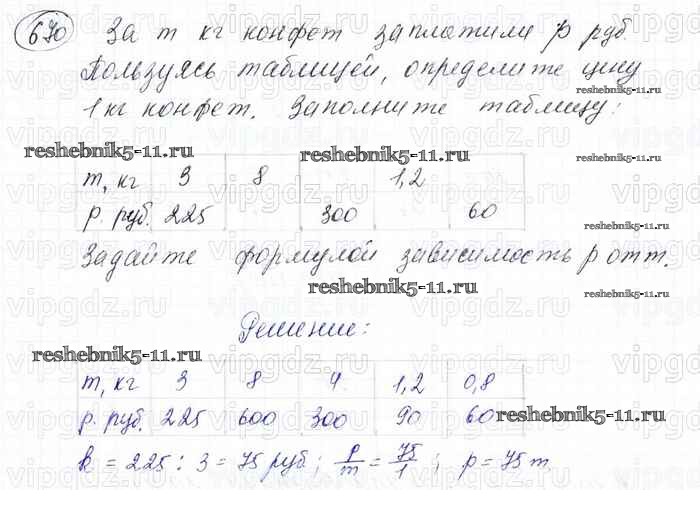 670 За m кг конфет заплатили p руб
Пользуясь таблицей, определите цену
1 кг конфет. Заполните таблицу:
reshebnik5-11.ru
reshebnik5-11.ru reshebnik5-11.ru reshebnik5-11.ru
m, кг 3 8 1,2
p. руб. 225 300 60
reshebnik5-11.ru
Задайте формулой зависимость p от m.
reshebnik5-11.ru reshebnik5-11.ru
Решение:
reshebnik5-11.ru
m, кг 3 8 4 1,2 0,8
p. руб. 225 600 300 90 60
reshebnik5-11.ru
k = 225 : 3 = 75 руб ; p/m = 75/1 ; p = 75 m
vipgdz.ru